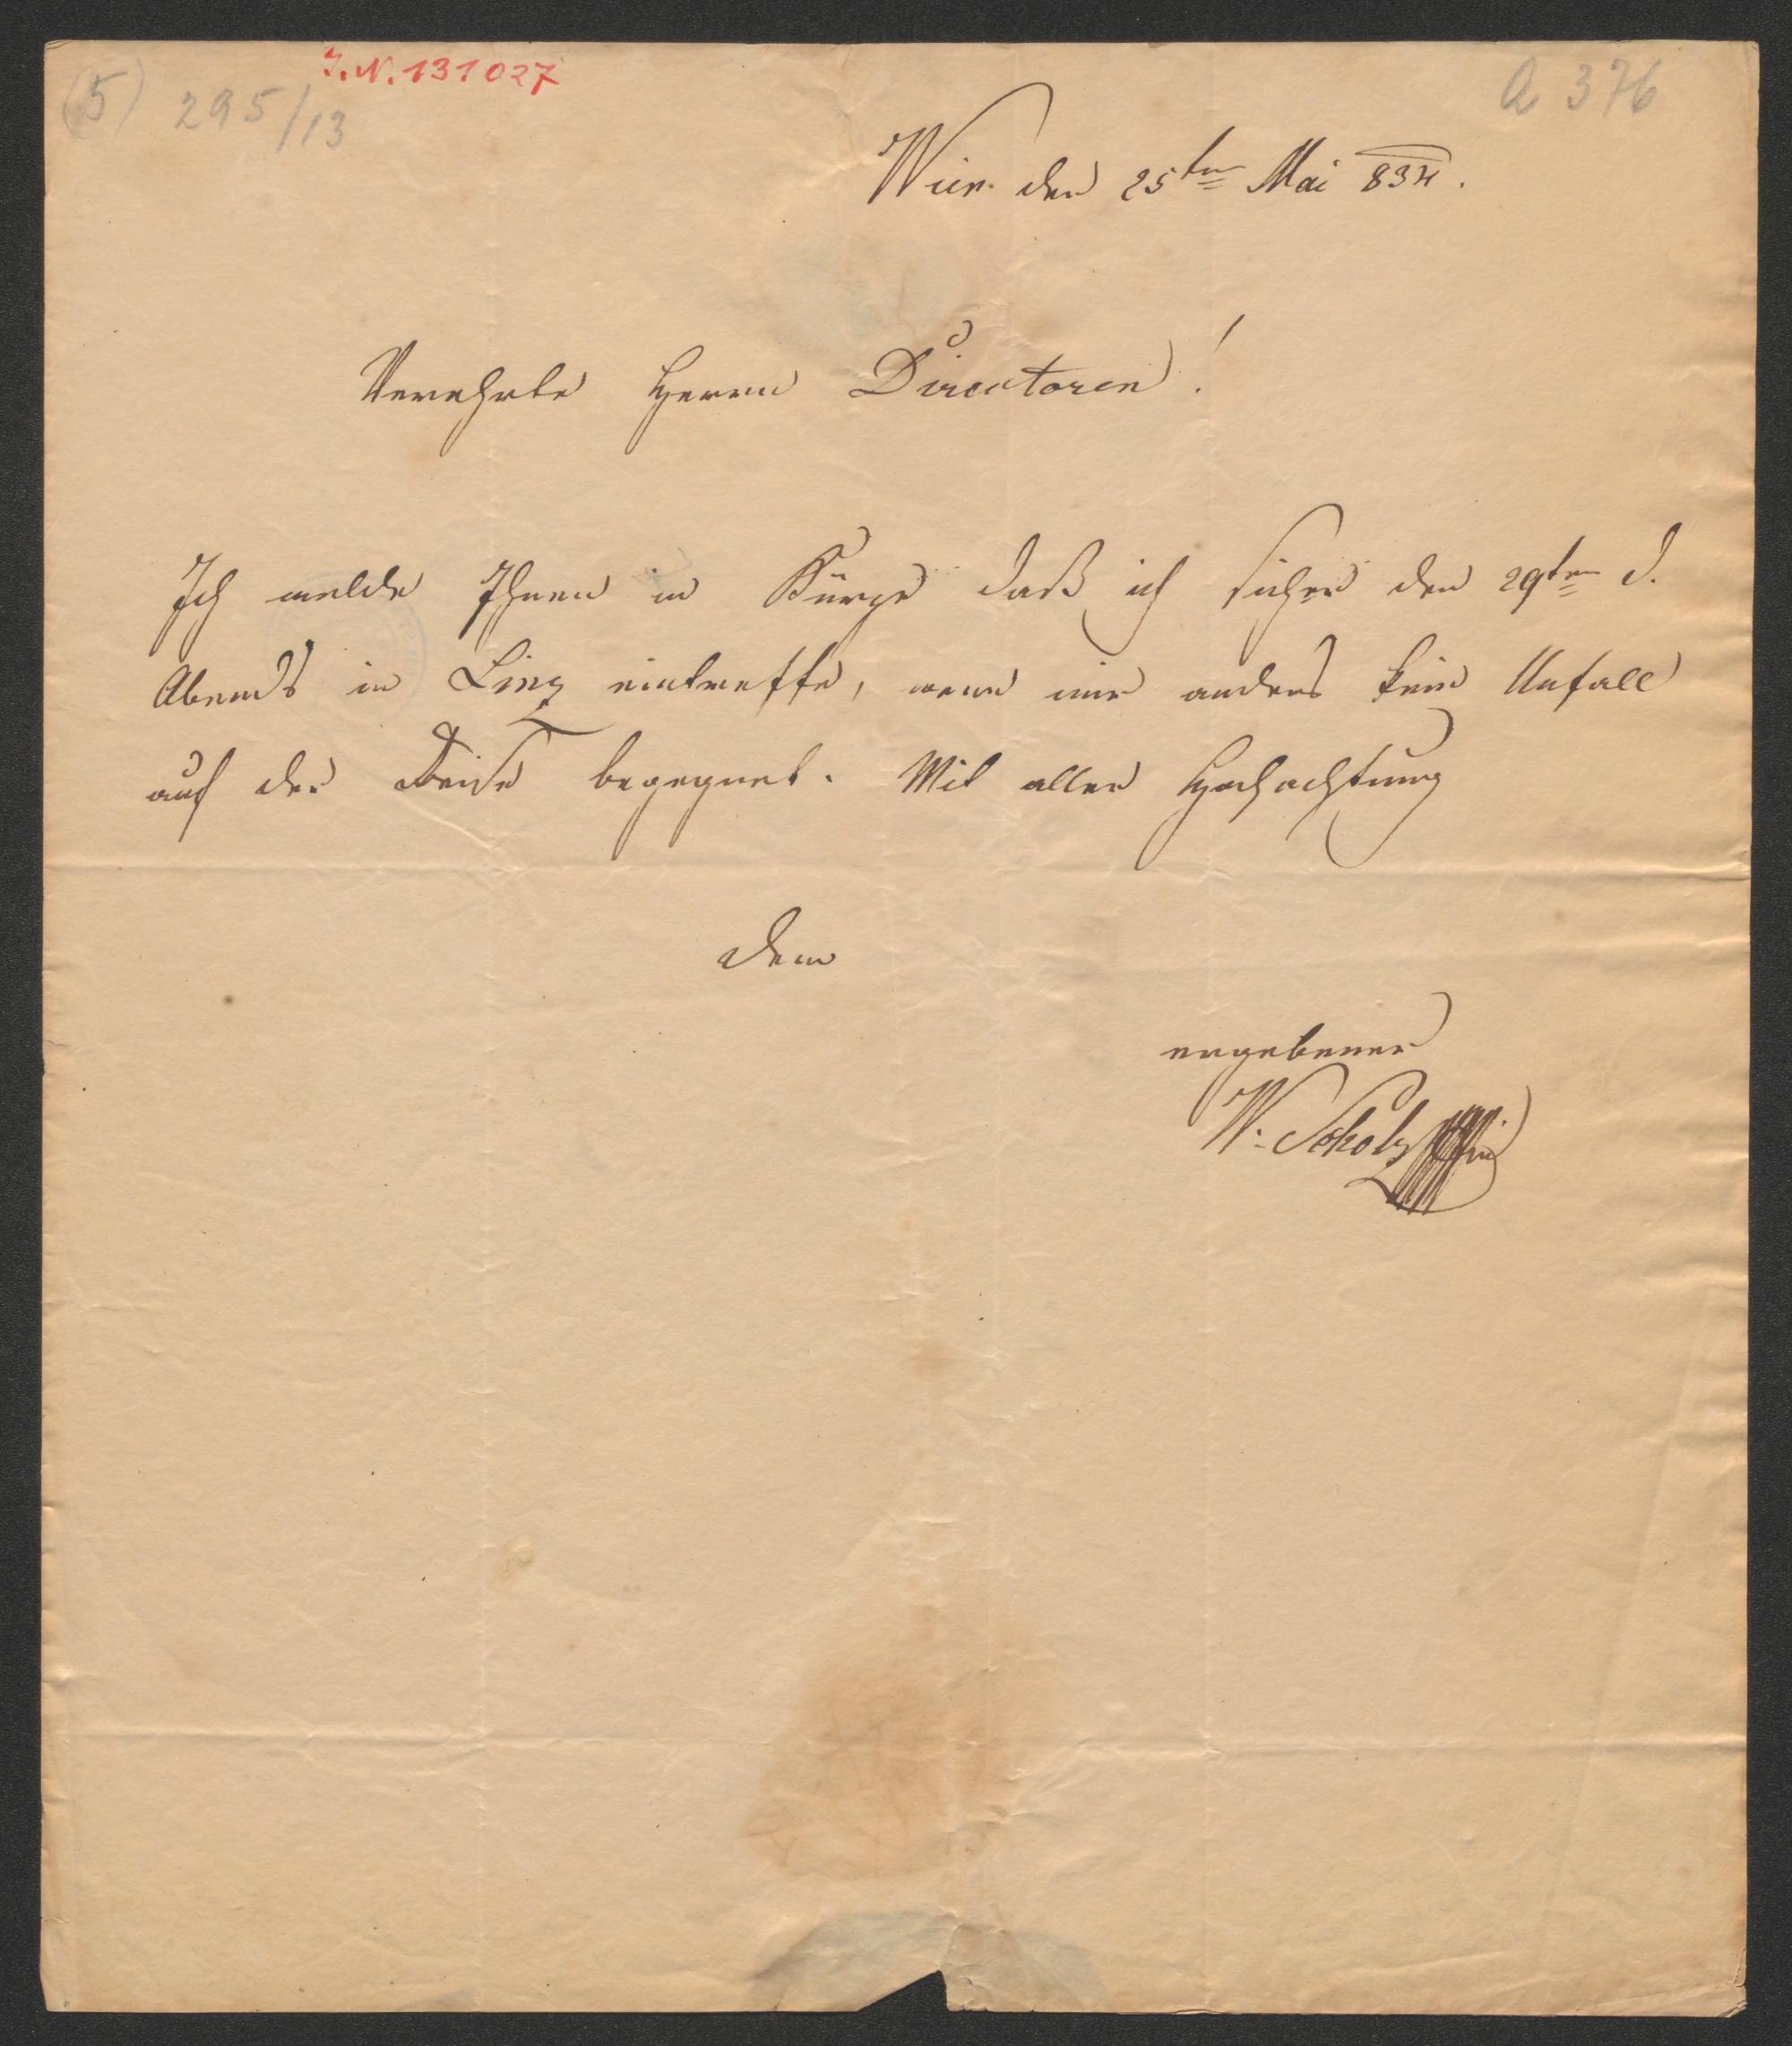 (5) 295/13
I.N. 131027
a 376
Wien den 25ten Mai 834.
Verehrte Herrn Directoren!
Ich melde Ihnen in Kürze daß ich sicher den 29ten d.
Abends in Linz eintreffe, wenn mir anders kein Unfall
auf der Reise begegnet. Mit aller Hochachtung
dero
ergebener
W. Scholz